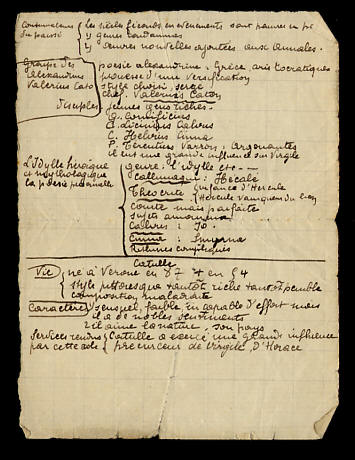 Continuateurs { Les siècles féconds en événements sont pauvres en
du passé { y genres condamnés
{ y Oeuvres nouvelles ajoutées aux Annales.
Groupe des Alexandrins Valerius Cato
poésie alexandrine : Grèce aristocratiques
d'une versification
style choisi, serré
chef Valerius Caton
disciples { jeunes gens riches
Q. Cornificius
C. Licinius Calvus
C. Helvius Cinna
P. Terentius Varron : Argonautes
il eut une grande influence sur Virgile
L'Idylle héroïque
et mythologique
la poésie personnelle
genre : l'idylle etc --
Callimaque : Hécalé
Théocrite { enfance d'Hercule
{ Hercule vainqueur du lion
courte mais parfaite
sujets amoureux
Calvus : Io.
Cinna : Smyrna
Catulle
Vie { né à Verone en 87 + en 54
style pittoresque tantôt riche tantôt pénible
composition maladroite
Caractère { sensuel, faible, incapable d'effort mais
il a de nobles sentiments
il aime la nature, son pays
Services rendus { Catulle a exercé une grande influence
par cette école { précurseur de Virgile d'Horace